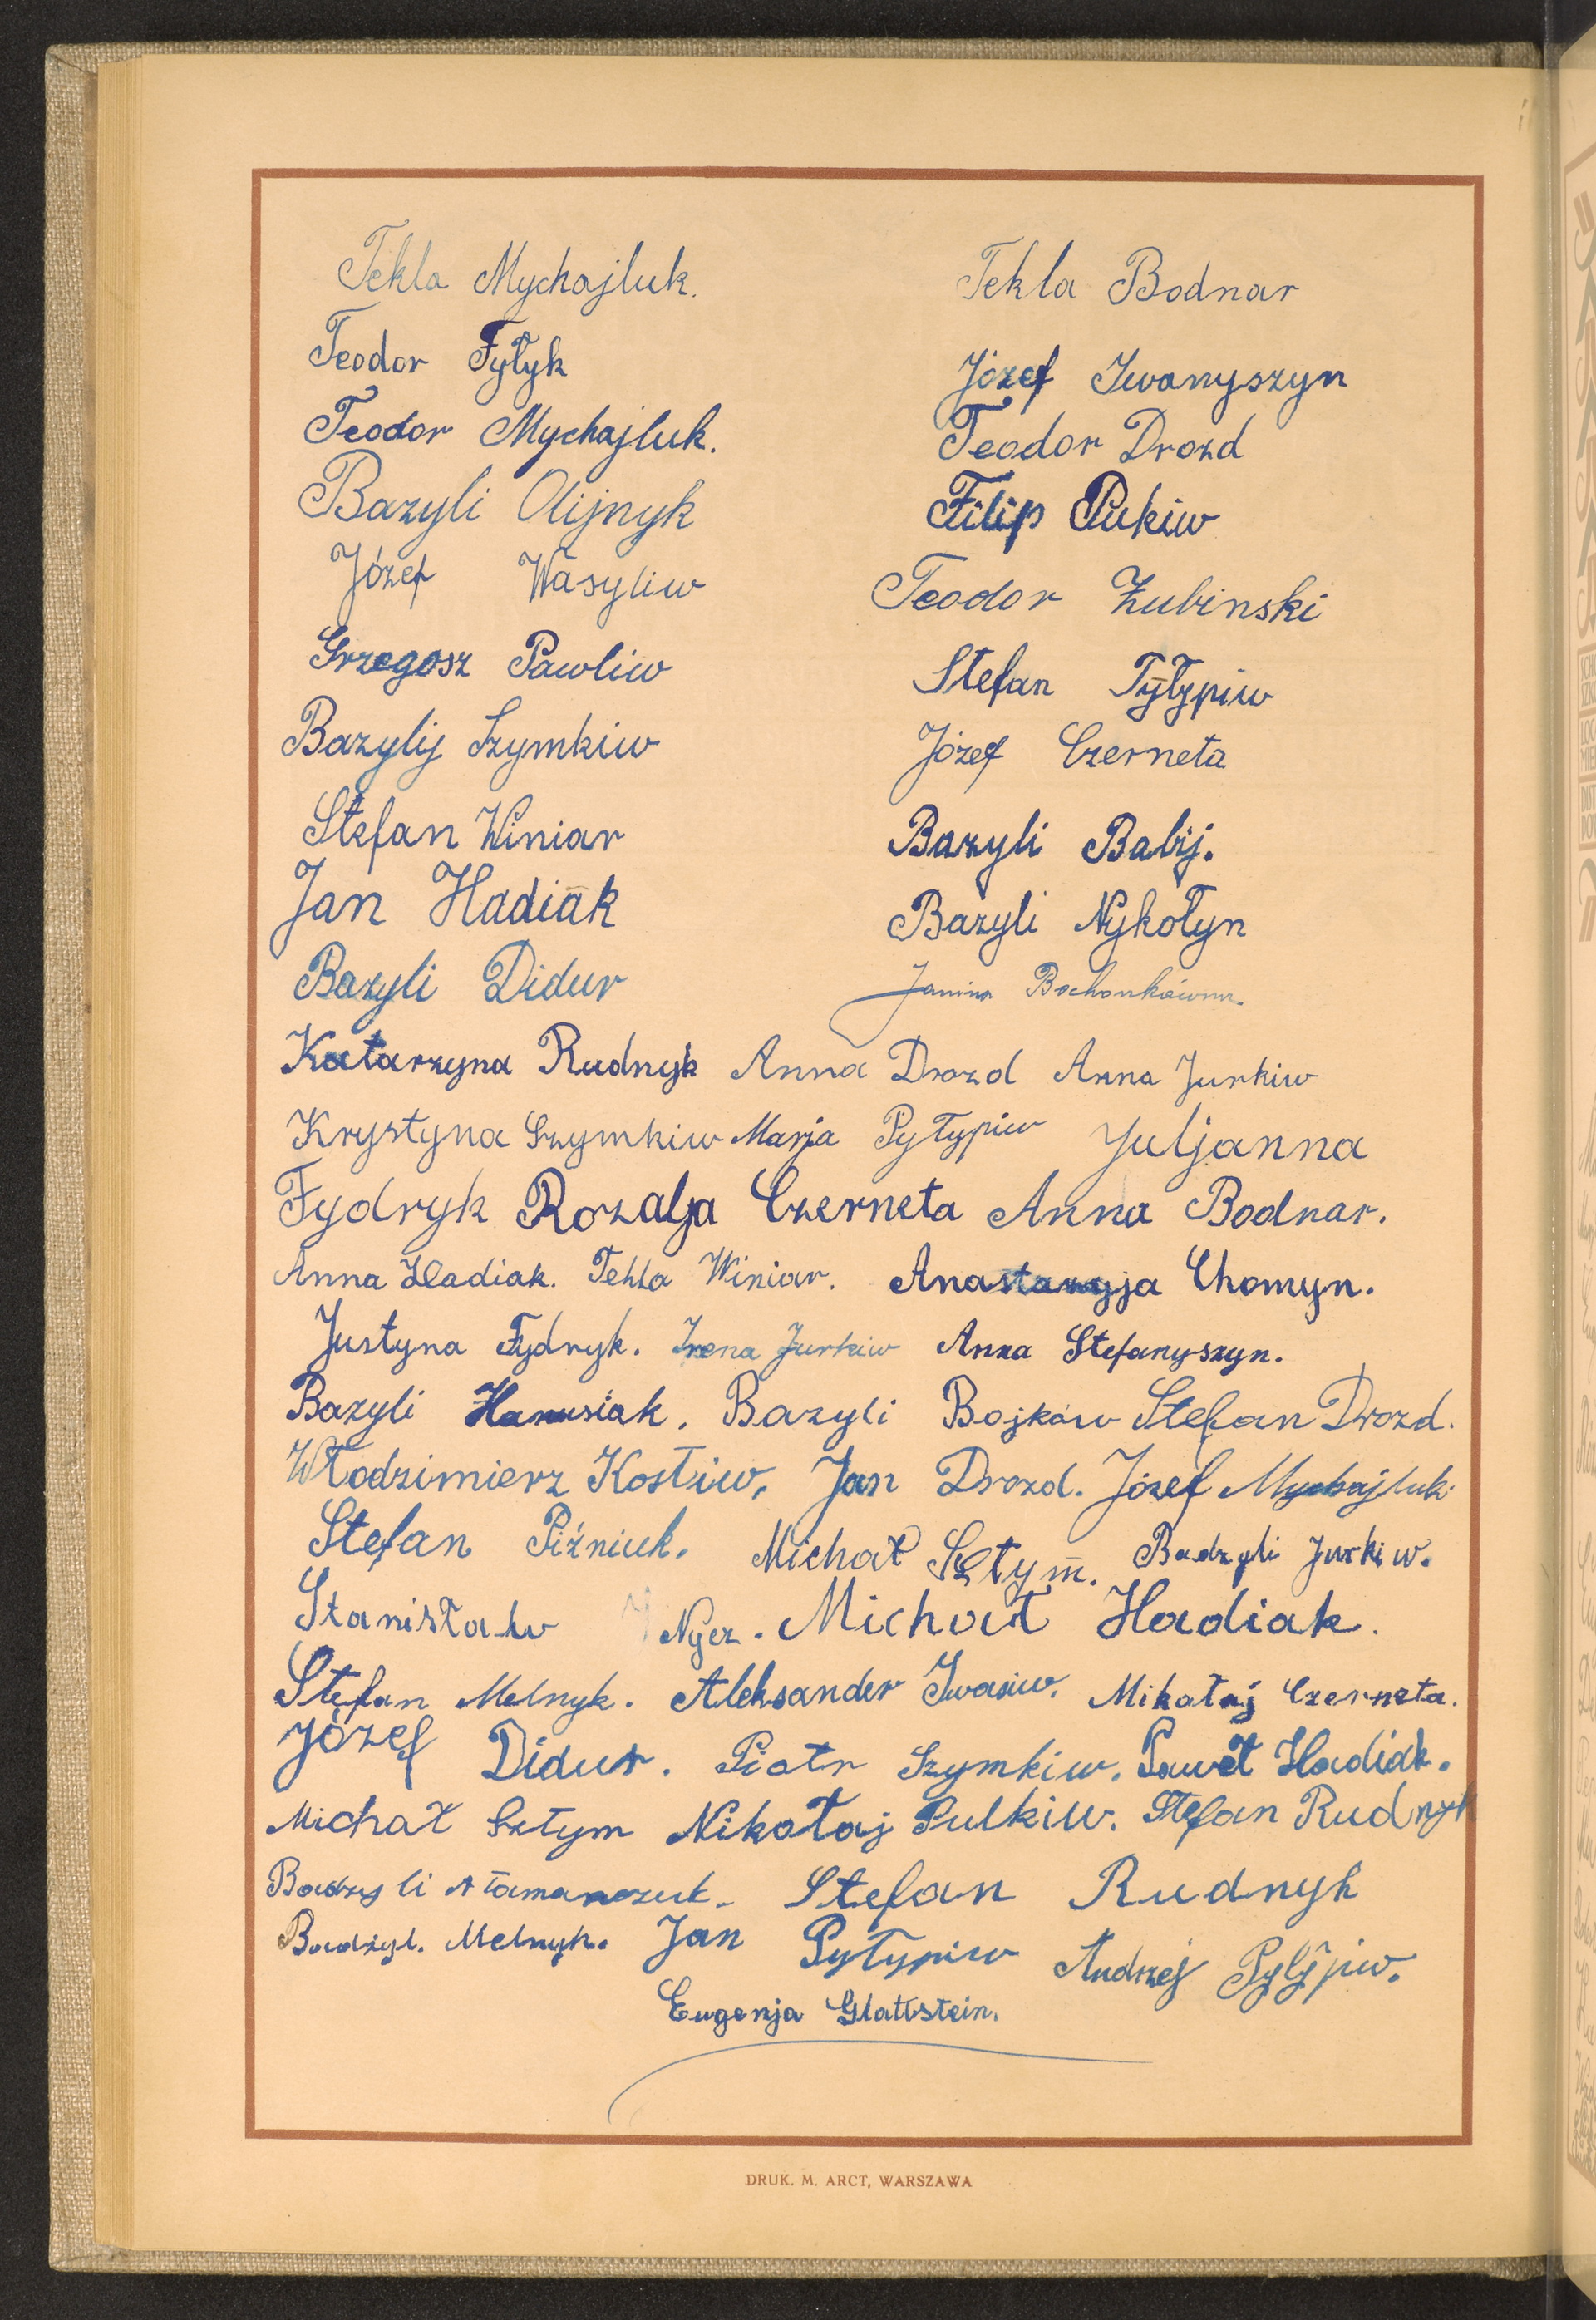 Tekla Mychajluk. Tekla Bodnar
Teodor Fytyk Józef Iwanyszyn
Teodor Mychajluk. Teodor Drozd
Bazyli Olijnyk Filip Pukiw
Józef Wasyliw Teodor Żubinski
Grzegosz Pawliw Stefan Pyłypiw
Bazylij Szymkiw Józef Czerneta
Stefan Winiar Bazyli Babij.
Jan Hadiak Bazyli Nykołyn
Bazyli Didur Janina Bochonkówna.
Katarzyna Rudnyk Anna Drozd Anna Jurkiw
Krystyna Szymkiw Marja Pyłypiw Juljanna
Fydryk Rozalja Czerneta Anna Bodnar.
Anna Hladiak. Tekla Winiar. Anastazyja Chomyn.
Justyna Fydryk. Irena Jurkiw Anna Stefanyszyn.
Bazyli Hanusiak. Bazyli Bojków Stefan Drozd.
Włodzimierz Kostiw, Jan Drozd. Józef Mychajluk
Stefan Piźniuk. Michał Sztym. Badzyli Jurkiw.
Stanisław Nycz. Michał Hadiak.
Stefan Melnyk. Aleksander Iwasiw. Mikołaj Czerneta.
Józef Didur. Piotr Szymkiw. Paweł Hadiak.
Michał Sztym Nikołaj Pulkiw. Stefan Rudnyk
Badzyli Atamanczuk. Stefan Rudnyk
Badzyl. Melnyk. Jan Pyłypiw Andrzej Pylypiw.
Eugenja Glattstein.
DRUK. M. ARCT, WARSZAWA